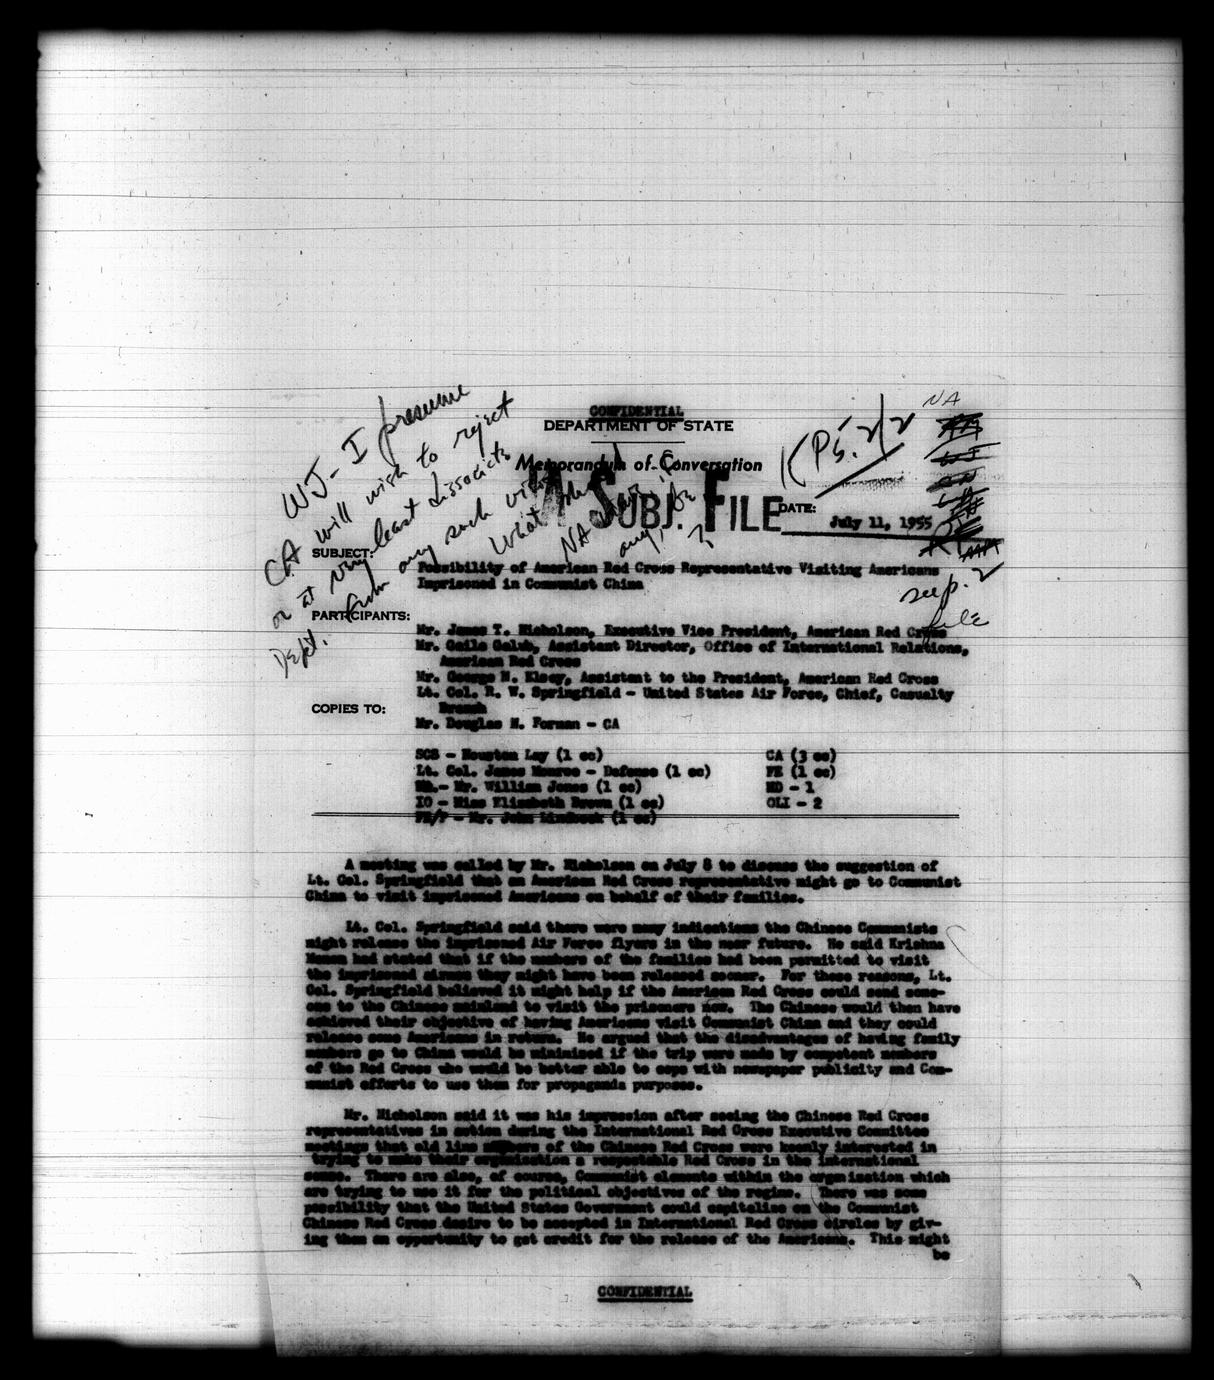 CONFIDENTIAL
DEPARTMENT OF STATE
Memorandum of Conversation
SUBJ. FILE
DATE: July 11, 1955
WJ - I presume
CA will wish to reject
or at very least dissociate
Dept. from any such visit.
What
NA
any, be
?
(PS. 2/2
NA
sep. 2
file
SUBJECT:
Possibility of American Red Cross Representative Visiting Americans
Imprisoned in Communist China
PARTICIPANTS:
Mr. James T. Nicholson, Executive Vice President, American Red Cross
Mr. Gaile Galub, Assistant Director, Office of International Relations,
American Red Cross
Mr. George M. Elsey, Assistant to the President, American Red Cross
Lt. Col. R. W. Springfield - United States Air Force, Chief, Casualty
Branch
COPIES TO:
Mr. Douglas N. Forman - CA
SCS - Houston Lay (1 cc) CA (3 cc)
Lt. Col. James Monroe - Defense (1 cc) FE (1 cc)
NA - Mr. William Jones (1 cc) MD - 1
IO - Miss Elizabeth Brown (1 cc) OLI - 2
FE/P - Mr. John Lindbeck (1 cc)
A meeting was called by Mr. Nicholson on July 8 to discuss the suggestion of
Lt. Col. Springfield that an American Red Cross representative might go to Communist
China to visit imprisoned Americans on behalf of their families.
Lt. Col. Springfield said there were many indications the Chinese Communists
might release the imprisoned Air Force flyers in the near future. He said Krishna
Menon had stated that if the members of the families had been permitted to visit
the imprisoned airmen they might have been released sooner. For these reasons, Lt.
Col. Springfield believed it might help if the American Red Cross could send some-
one to the Chinese mainland to visit the prisoners now. The Chinese would then have
achieved their objective of having Americans visit Communist China and they could
release some Americans in return. He argued that the disadvantages of having family
members go to China would be minimized if the trip were made by competent members
of the Red Cross who would be better able to cope with newspaper publicity and Com-
munist efforts to use them for propaganda purposes.
Mr. Nicholson said it was his impression after seeing the Chinese Red Cross
representatives in action during the International Red Cross Executive Committee
meetings that old line members of the Chinese Red Cross were keenly interested in
trying to make their organization a respectable Red Cross in the international
sense. There are also, of course, Communist elements within the organization which
are trying to use it for the political objectives of the regime. There was some
possibility that the United States Government could capitalize on the Communist
Chinese Red Cross desire to be accepted in International Red Cross circles by giv-
ing them an opportunity to get credit for the release of the Americans. This might
be
CONFIDENTIAL